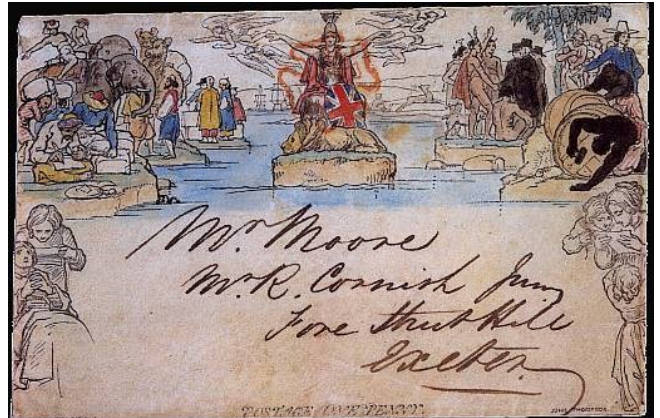 Mr Moore
Mr R. Cornish Jun
Fore Street Hill
Exeter
POSTAGE ONE PENNY.
JOHN THOMPSON